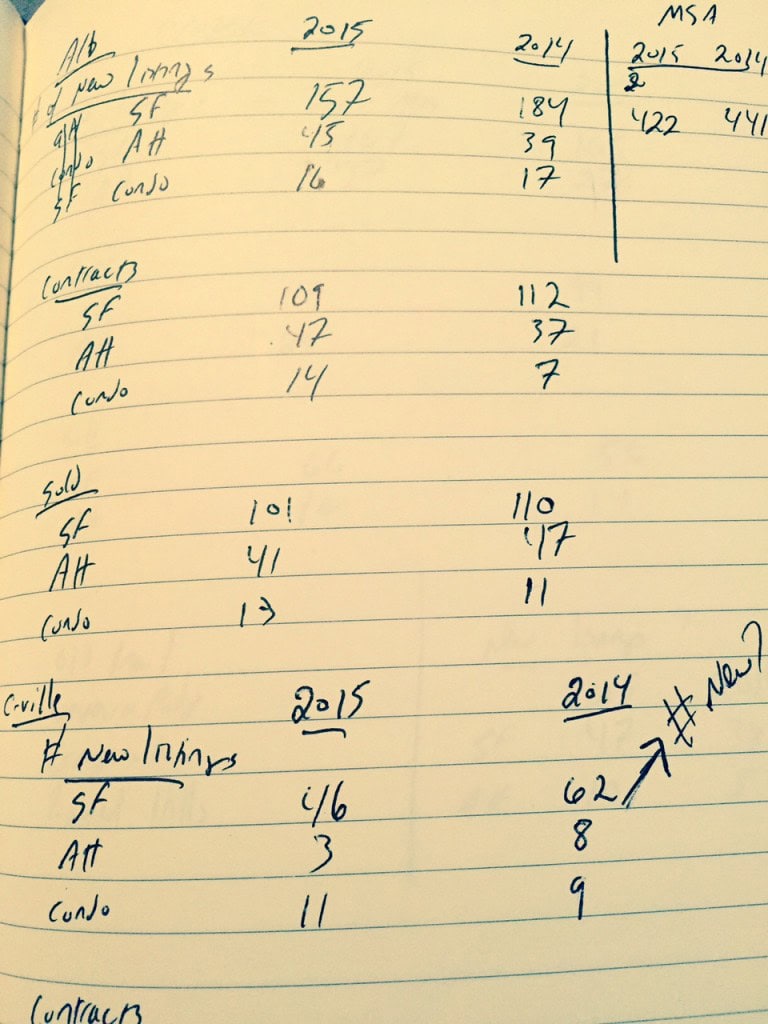 MSA
Alb 2015 2014 2015 2014
# of New listings
SF 157 184 422 441
Att 45 39
Condo 16 17
Contracts
SF 109 112
Att 47 37
Condo 14 7
Sold
SF 101 110
Att 41 47
Condo 13 11
C-ville 2015 2014 # New?
# New listings
SF 46 62
Att 3 8
Condo 11 9
Contracts